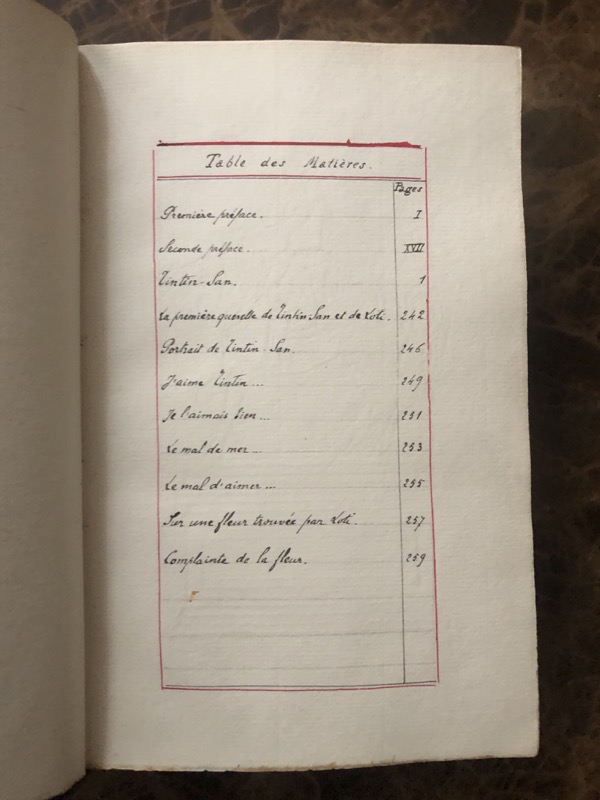 Table des Matières.
Pages
Première préface. I
Seconde préface. XVII
Tintin-San. 1
La première querelle de Tintin-San et de Loti. 242
Portrait de Tintin-San. 246
J'aime Tintin... 249
Je l'aimais bien... 251
Le mal de mer... 253
Le mal d'aimer... 255
Sur une fleur trouvée par Loti. 257
Complainte de la fleur. 259